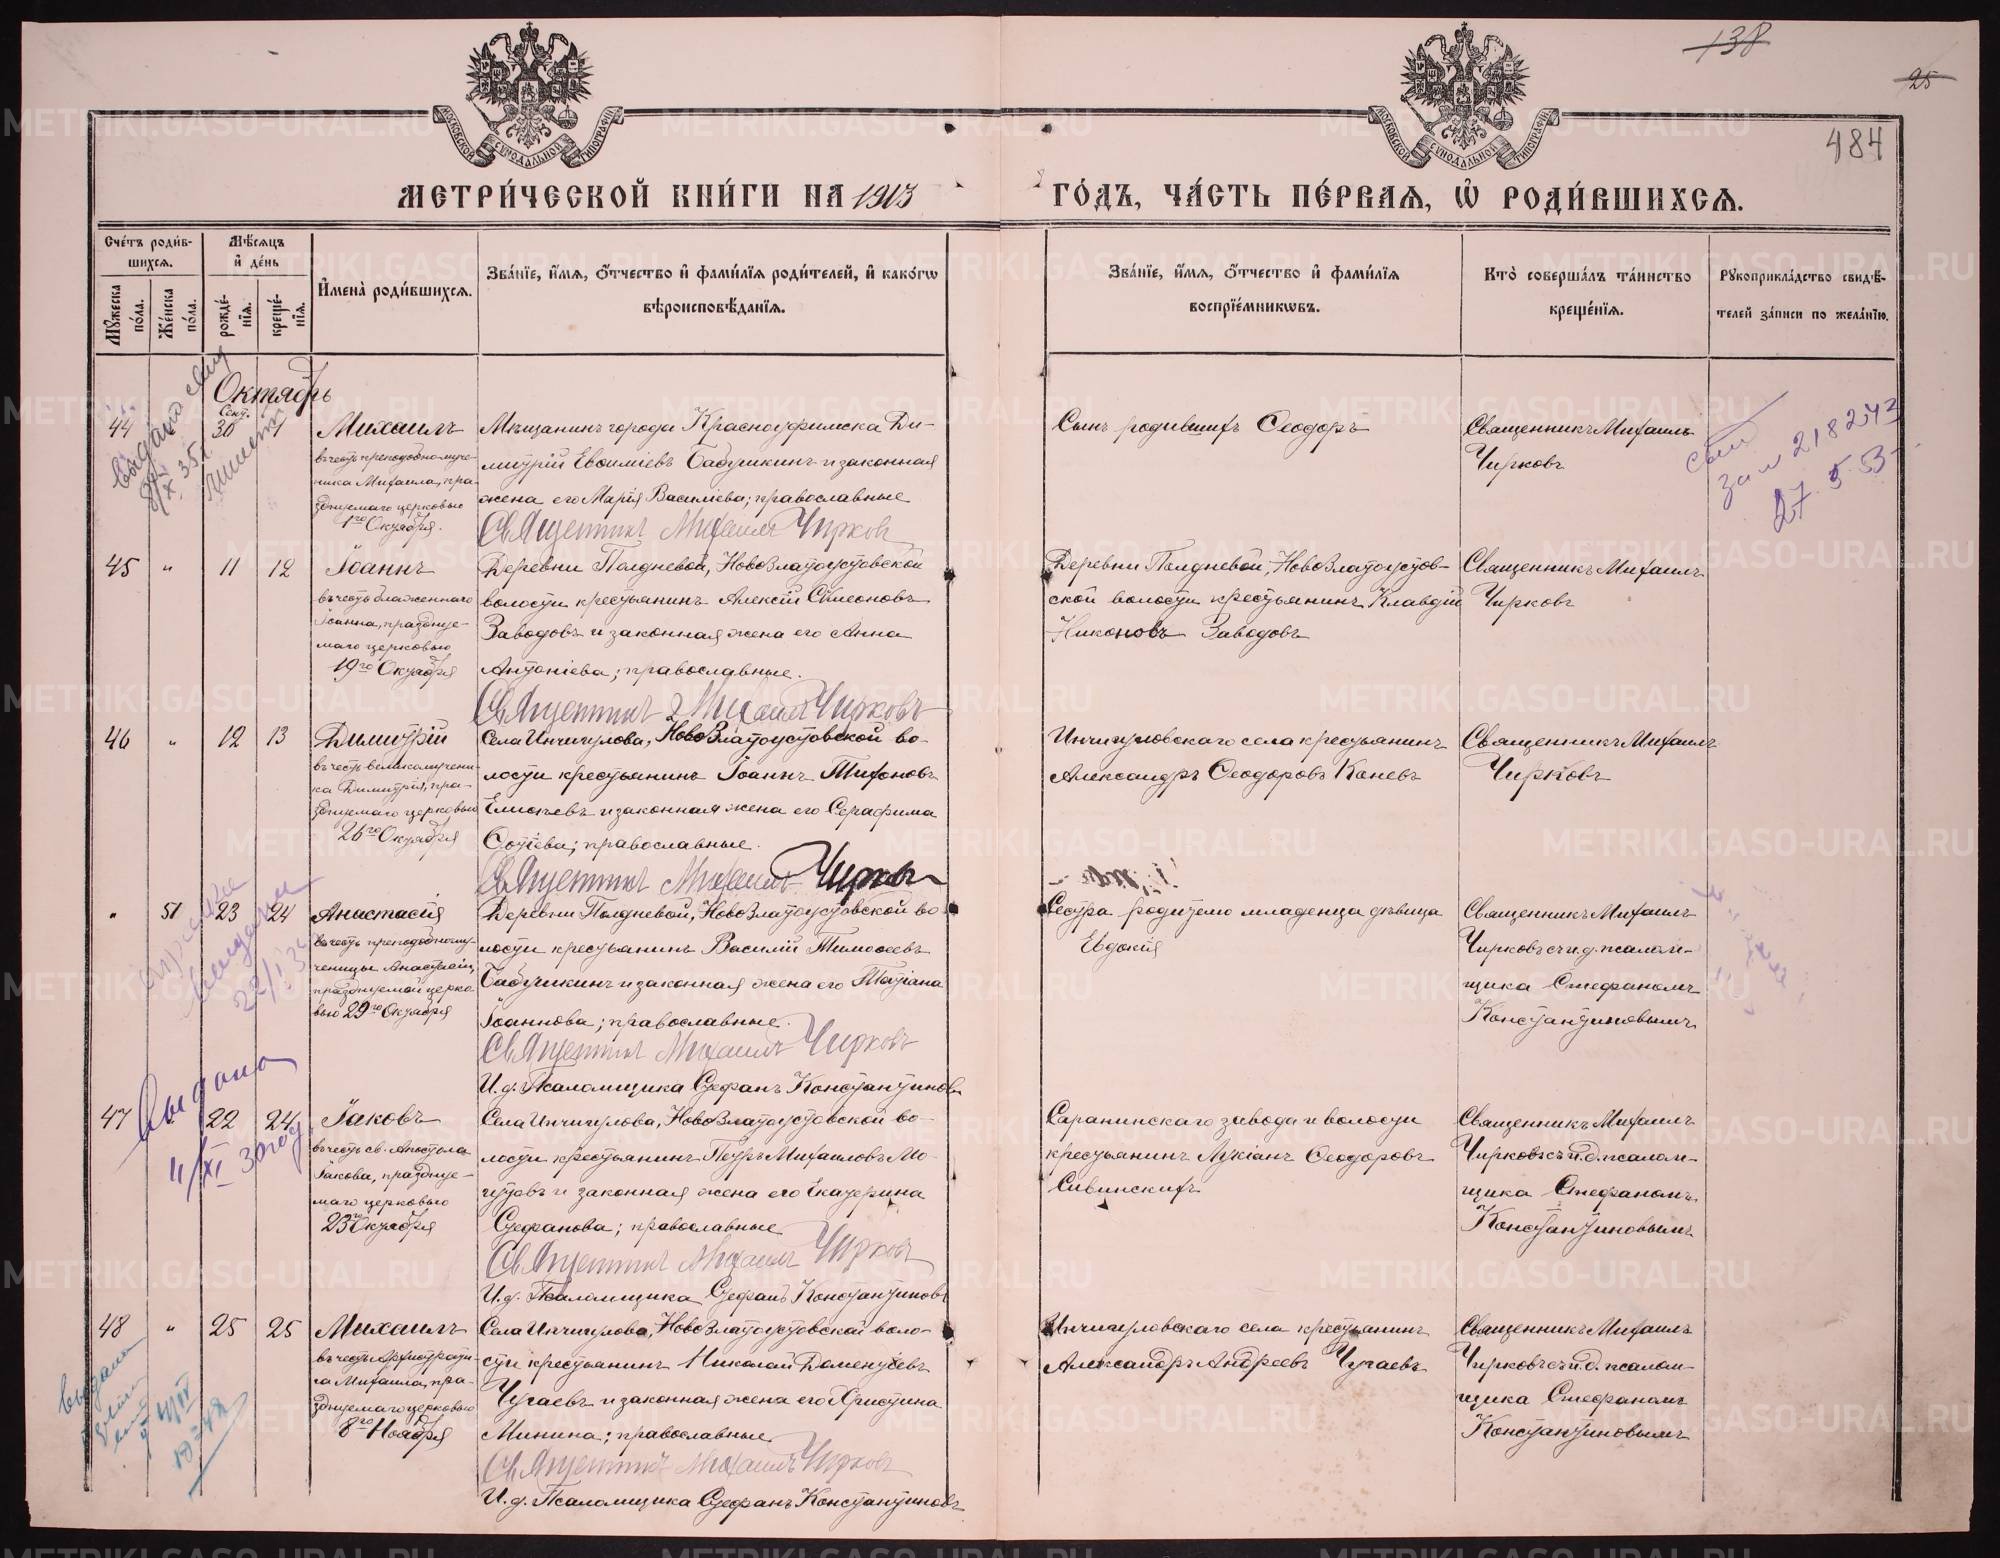 138
25
484
МОСКОВСКОЙ СѴНОДАЛЬНОЙ ТИПОГРАФІИ
МОСКОВСКОЙ СѴНОДАЛЬНОЙ ТИПОГРАФІИ
МЕТРИ́ЧЕСКОЙ КНИ́ГИ НА 1913 ГО́ДЪ, ЧА́СТЬ ПЕ́РВАѦ, Ѡ҆ РОДИ́ВШИХСѦ.
Сче́тъ роди́в-
шихсѧ.
Мꙋжеска по́ла.
Же́нска по́ла.
Мѣ́сѧцъ
и҆ де́нь
рожде́-
нїѧ.
креще́-
нїѧ.
И҆мена̀ роди́вшихсѧ.
Зва́нїе, и҆́мѧ, ѻ҆́тчество и҆ фами́лїѧ роди́телей, и҆ како́гѡ
вѣроисповѣ́данїѧ.
Зва́нїе, и҆́мѧ, ѻ҆́тчество и҆ фами́лїѧ
воспрїе́мникѡвъ.
Кто̀ соверша́лъ та́инство
креще́нїѧ.
Рꙋкоприкла́дство свидѣ́-
телей за́писи по жела́нїю.
Октябрь
44
Сент.
30
1
Михаилъ
въ честь преподобномуче-
ника Михаила, пра-
зднуемаго церковью
1го Октября.
Мѣщанинъ города Красноуфимска Ди-
митрій Евѳиміевъ Бабушкинъ и законная
жена его Марія Василіева; православные
Священникъ Михаилъ Чирковъ
Сынъ родившихъ Ѳеодоръ
Священникъ Михаилъ
Чирковъ
218243
27.5.53
45
"
11
12
Іоаннъ
въ честь блаженнаго
Іоанна, празднуе-
маго церковью
19го Октября
Деревни Полдневой, Ново Златоустовской
волости крестьянинъ Алексій Симеоновъ
Заводовъ и законная жена его Анна
Антоніева; православные.
Священникъ Михаилъ Чирковъ
Деревни Полдневой, Ново Златоустов-
ской волости крестьянинъ Клавдій
Никоновъ Заводовъ
Священникъ Михаилъ
Чирковъ
46
"
12
13
Димитрій
въ честь великомучени-
ка Димитрія, пра-
зднуемаго церковью
26го Октября
Села Инчигулова, Ново Златоустовской во-
лости крестьянинъ Іоаннъ Тифоновъ
Елисѣевъ и законная жена его Серафима
Фотіева; православные.
Священникъ Михаилъ Чирковъ
Инчигуловскаго села крестьянинъ
Александръ Ѳеодоровъ Коневъ
Священникъ Михаилъ
Чирковъ
"
51
23
24
Анастасія
въ честь преподобному-
ченицы Анастасіи,
празднуемой церко-
вью 29го Октября
Деревни Полдневой, Ново Златоустовской во-
лости крестьянинъ Василій Тимоѳеевъ
Бабушкинъ и законная жена его Татіана
Іоаннова; православные.
Священникъ Михаилъ Чирковъ
И.д. Псаломщика Стефанъ Константиновъ
Сестра родителю младенца дѣвица
Евдокія
Священникъ Михаилъ
Чирковъ съ и.д. псалом-
щика Стефаномъ
Константиновымъ
47
22
24
Іаковъ
въ честь св. Апостола
Іакова, празднуе-
маго церковью
23го Октября
Села Инчигулова, Ново Златоустовской во-
лости крестьянинъ Петръ Михаиловъ Мо-
гутовъ и законная жена его Екатерина
Стефанова; православные
Священникъ Михаилъ Чирковъ
И.д. Псаломщика Стефанъ Константиновъ
Саранинскаго завода и волости
крестьянинъ Лукіанъ Ѳеодоровъ
Сивинскихъ
Священникъ Михаилъ
Чирковъ съ и.д. псалом-
щика Стефаномъ
Константиновымъ
48
"
25
25
Михаилъ
въ честь Архистрати-
га Михаила, пра-
зднуемаго церковью
8го Ноября
Села Инчигулова, Ново Златоустовской воло-
сти крестьянинъ Николай Доментіевъ
Чугаевъ и законная жена его Христина
Минина; православные
Священникъ Михаилъ Чирковъ
И.д. Псаломщика Стефанъ Константиновъ
Инчигуловскаго села крестьянинъ
Александръ Андреевъ Чугаевъ
Священникъ Михаилъ
Чирковъ съ и.д. псалом-
щика Стефаномъ
Константиновымъ
Выдана
METRIKI.GASO-URAL.RU